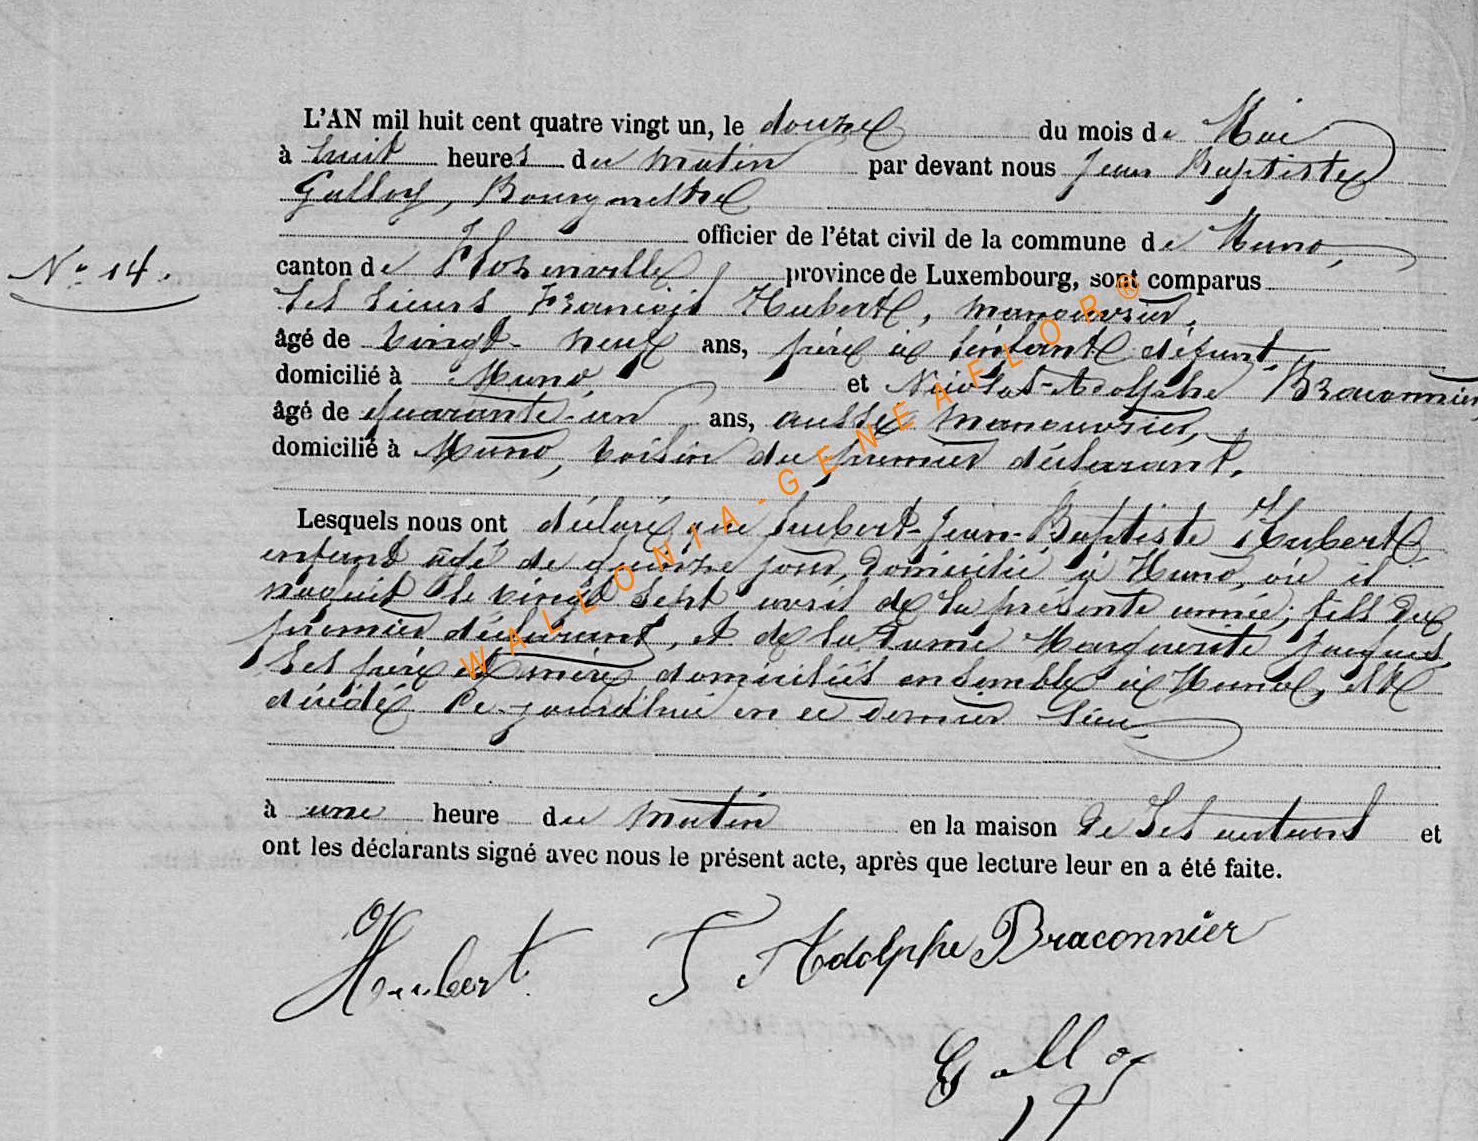 L'AN mil huit cent quatre vingt un, le douze du mois de Mai
à huit heures du matin par devant nous Jean Baptiste
Galloy, Bourgmestre
officier de l'état civil de la commune de Muno,
N° 14.
canton de Florenville province de Luxembourg, sont comparus
les sieurs François Hubert, manouvrier,
âgé de vingt-neuf ans, père à l'enfant défunt
domicilié à Muno et Nicolas-Adolphe Braconnier
âgé de quarante-un ans, aussi manouvrier,
domicilié à Muno, voisin du premier déclarant.
Lesquels nous ont déclaré que hubert-Jean-Baptiste Hubert
enfant âgé de quinze jour, domicilié à Muno, où il
naquit le vingt sept avril de la présente année; fils du
premier déclarant, et de la Dame Marguerite Jacques,
ses père et mère domiciliés ensemble à Muno, est
décédé ce-jourd'hui en ce dernier lieu
à une heure du matin en la maison de ses et
ont les déclarants signé avec nous le présent acte, après que lecture leur en a été faite.
Houbert Adolphe Braconnier
Galloy
WALLONIA-GENEAFLOR®